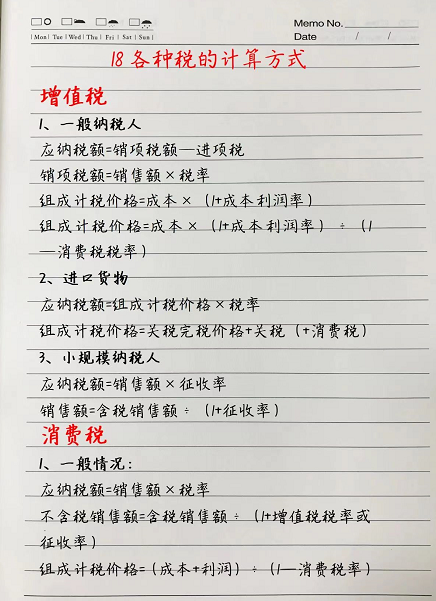 Memo No.
Mon Tue Wed Thu Fri Sat Sun
Date / /
18各种税的计算方式
增值税
1、一般纳税人
应纳税额=销项税额—进项税
销项税额=销售额×税率
组成计税价格=成本×(1+成本利润率)
组成计税价格=成本×(1+成本利润率)÷(1
—消费税税率)
2、进口货物
应纳税额=组成计税价格×税率
组成计税价格=关税完税价格+关税(+消费税)
3、小规模纳税人
应纳税额=销售额×征收率
销售额=含税销售额÷(1+征收率)
消费税
1、一般情况:
应纳税额=销售额×税率
不含税销售额=含税销售额÷(1+增值税税率或
征收率)
组成计税价格=(成本+利润)÷(1—消费税率)